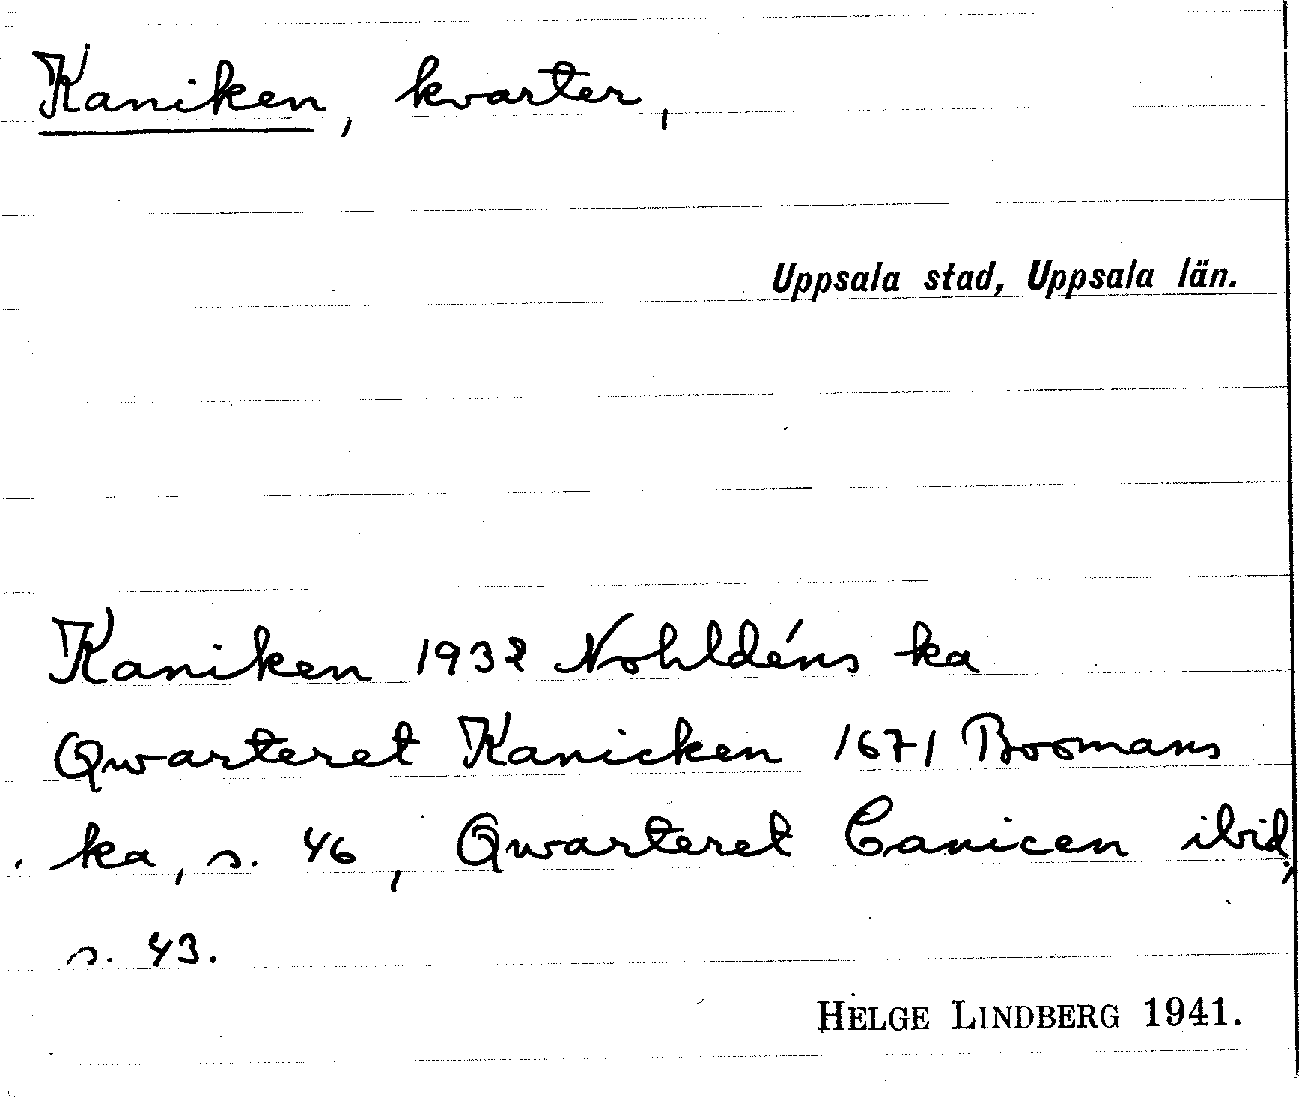 Kaniken, kvarter,
Uppsala stad, Uppsala län.
Kaniken 1932 Nohldéns ka
Qwarteret Kanicken 1671 Boomans
ka, s. 46, Qwarteret Canicen ibid,
s. 43.
HELGE LINDBERG 1941.